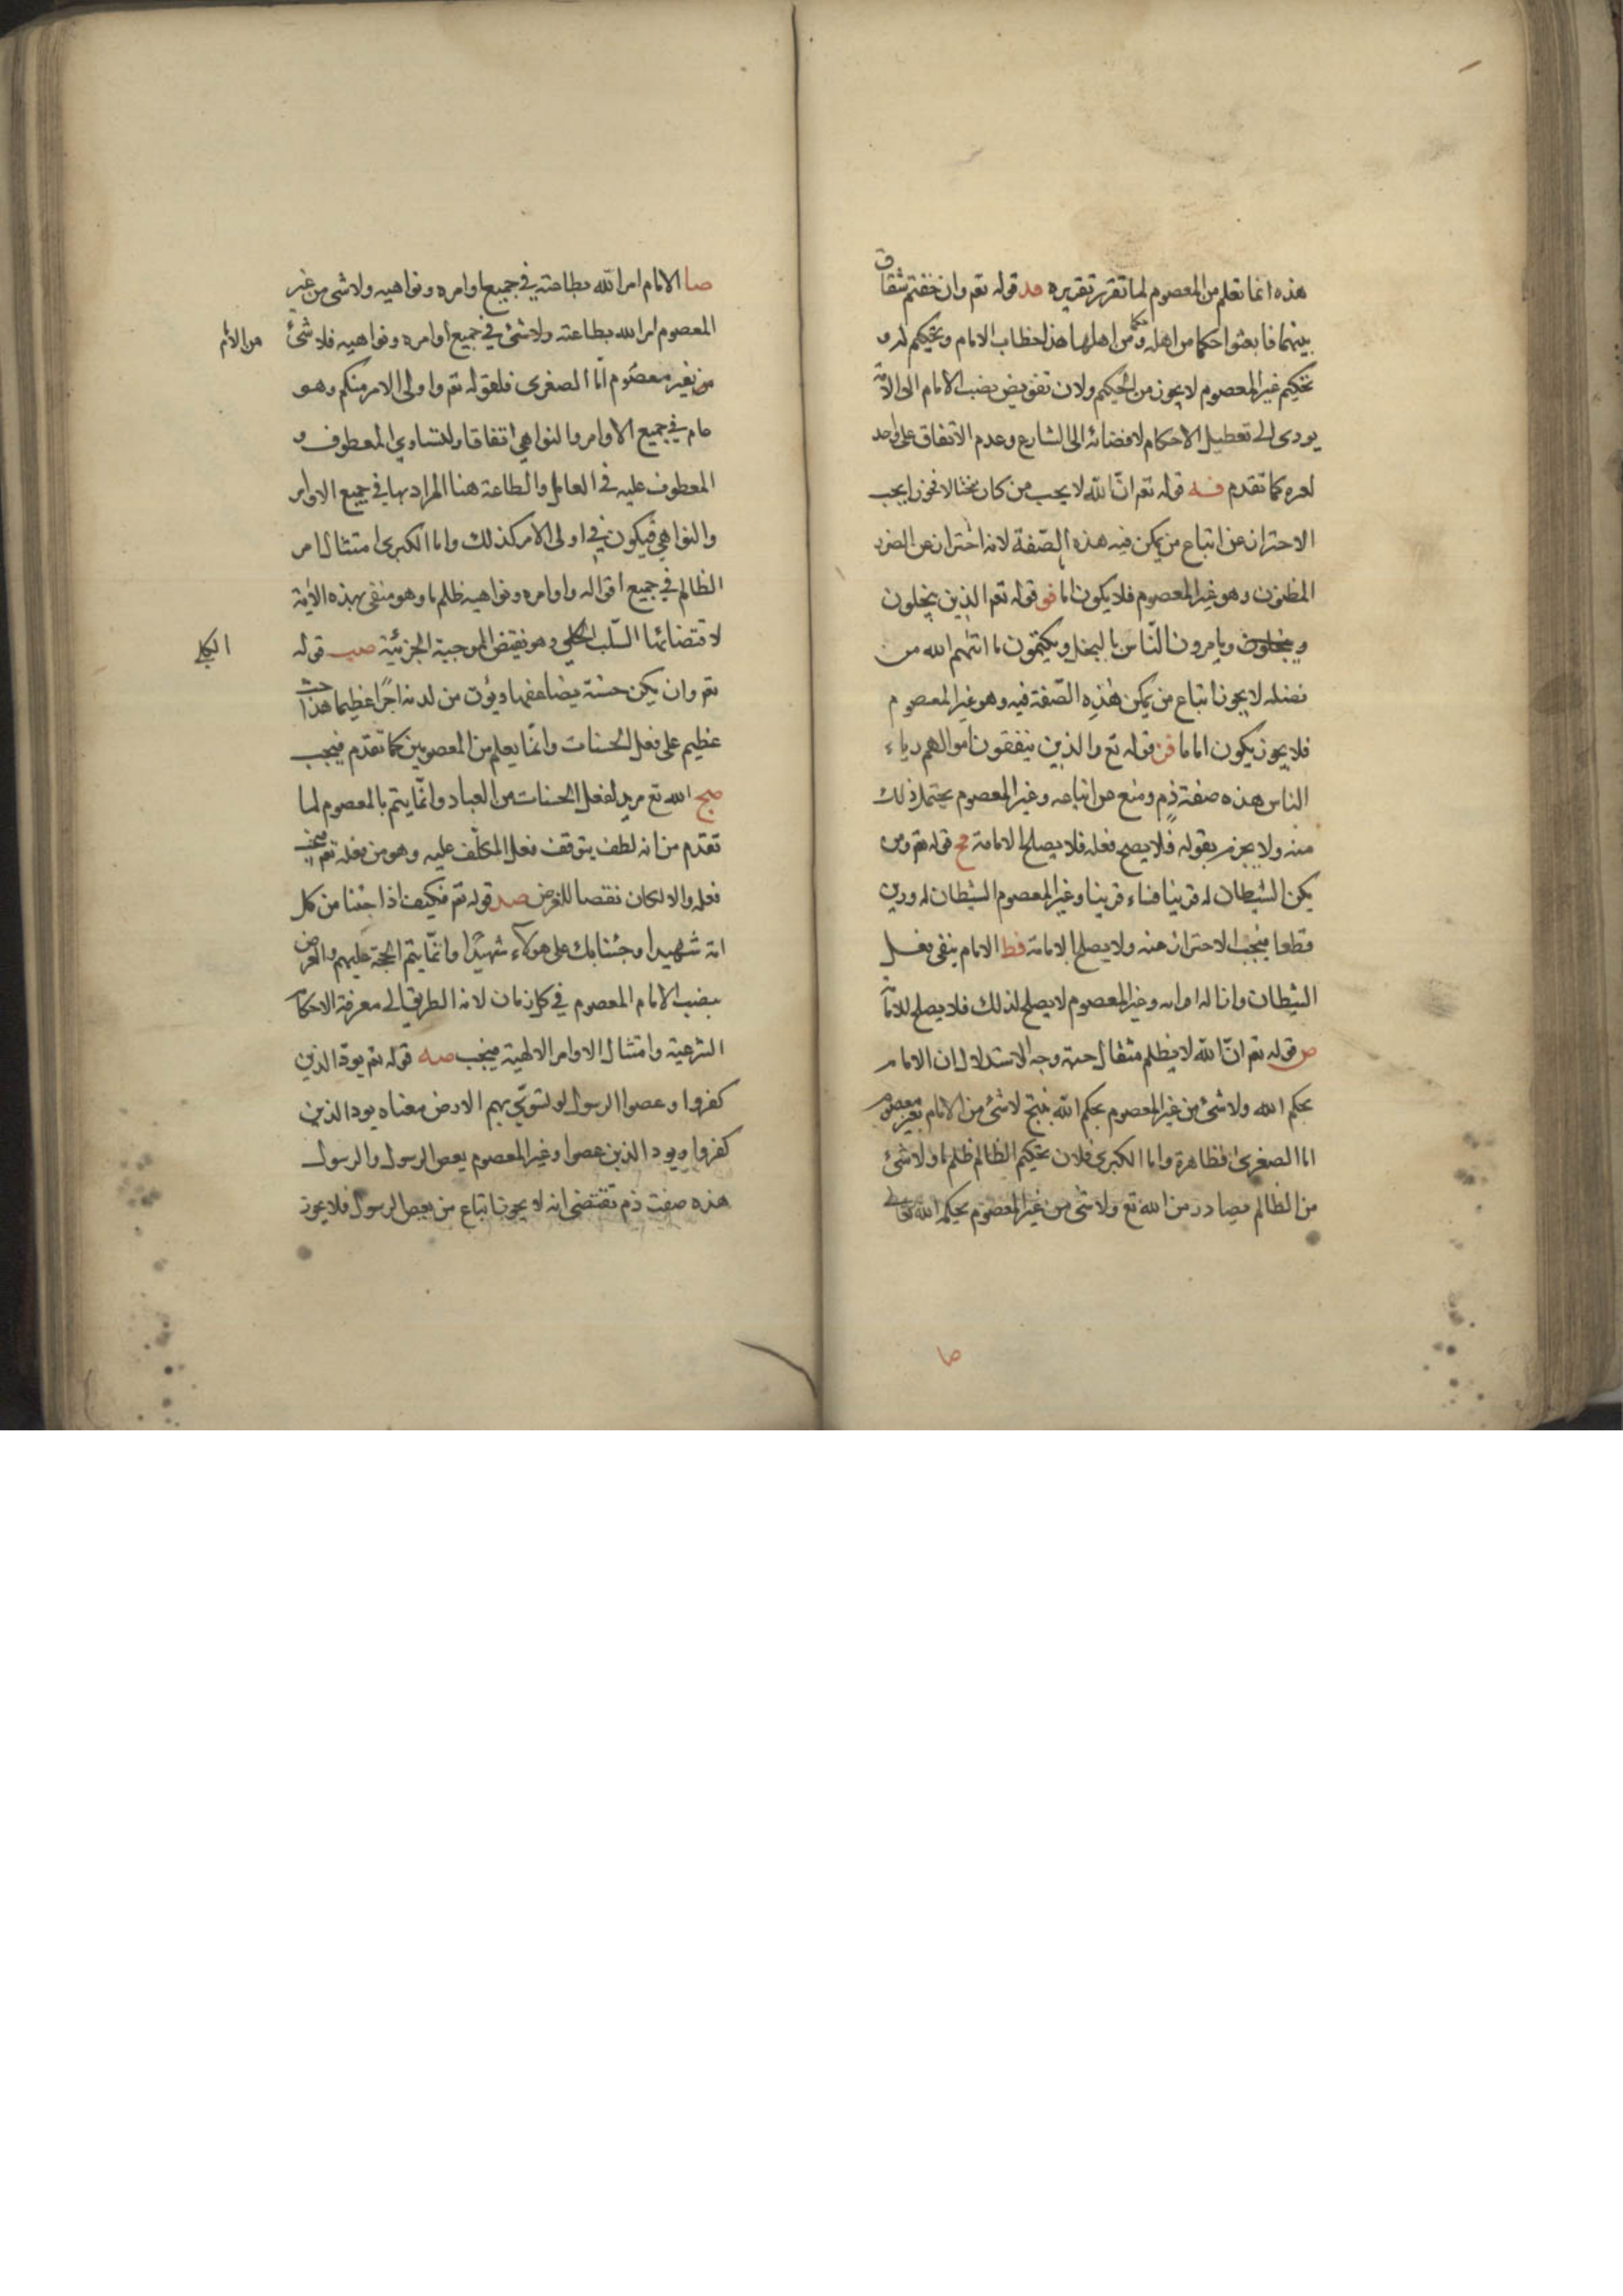 هذه انما تعلم من المعصوم لما تقرر تقريره فد قوله تعم وان خفتم شقاق
بينهما فابعثوا حكما من اهله وحكما من اهلها هذا خطاب الامام وتحكيم له و
تحكيم غير المعصوم لا يجوز من الحكيم ولان تفويض نصب الامام الى الامة
يودى الى تعطيل الاحكام لافضائه الى الشارع وعدم الاتفاق على واحد
لعره كما تقدم فه قوله تعم ان الله لا يحب من كان مختالا فخورا يجب
الاحتراز عن اتباع من يمكن فيه هذه الصّفة لانه احتراز عن الضرر
المظنون وهو غير المعصوم فلا يكون اماما فو قوله تعم الذين يبخلون
ويامرون النّاس بالبخل ويكتمون ما اتيهم الله من
فضله لا يجوز اتباع من يمكن هذِه الصّفة فيه وهو غير المعصوم
فلا يجوز يكون اماما فز قوله تع والذين ينفقون اموالهم رياء
الناس هذه صفة ذم ومنع من اتباعه وغير المعصوم يحتمل ذلك
منه ولا يجزم بقوله فلا يصح فعله فلا يصلح للامامة فح قوله تعم ومن
يكن الشيطان له قرينا فساء قرينا وغير المعصوم الشيطان له قرين
قطعا فيجب الاحتراز عنه ولا يصلح للامامة فط الامام ينفى فعل
الشيطان وانا له اوامه وغير المعصوم لا يصلح لذلك فلا يصلح للامامة
ص قوله تعم انّ الله لا يظلم مثقال حبة وجه الاستدلال ان الامام
بحكم الله ولا شئ من غير المعصوم بحكم الله ينتج لا شئ من الامام بغير معصوم
اما الصغرى فظاهرة واما الكبرى فلان تحكيم الظالم ظلم ما ولا شئ
من الظالم بصادر من الله تع ولا شئ من غير المعصوم بحكم الله تعالى
صا
صا الامام امر الله بطاعته فى جميع اوامره ونواهيه ولا شئ من غير
المعصوم امر الله بطاعته ولا شئ فى جميع اوامره ونواهيه فلا شئ
من الامام
من بغير معصوم امّا الصغرى فلقوله تعم واولى الامر منكم وهو
عام فى جميع الاوامر والنواهى اتفاقا ولتساوى المعطوف و
المعطوف عليه فى العامل والطاعة هنا المراد بها فى جميع الاوامر
والنواهى فيكون فى اولى الامر كذلك واما الكبرى امتثال امر
الظالم فى جميع اقواله واوامره ونواهيه ظلم ما وهو منفى بهذه الاية
لاقتضائها السّلب الكلى وهو نقيض الموجبة الجزئية صب قوله
الكلى
تعم وان يكن حسنة يضاعفها ويؤت من لدنه اجرًا عظيما هذا حث
عظيم على فعل الحسنات وانّما يعلم من المعصومين كما تقدم فيجب
صج الله تع مريد لفعل الحسنات من العباد وانّما يتم بالمعصوم لما
تقدم من انه لطف يتوقف فعل المكلّف عليه وهو من فعله تعم فيجب
فعله والا لكان نقصا للغرض صد قوله تعم فكيف اذا جئنا من كل
امة شهيدا وجئنا بك على هولاء شهيدًا وانّما يتم الحجة عليهم والغرض
بنصب الامام المعصوم فى كل زمان لانه الطريق الى معرفة الاحكام
الشرعية وامتثال الاوامر الالهية فيجب صه قوله تعم يودّ الذين
كفروا وعصوا الرسول لو تسوّى بهم الارض معناه يود الذين
كفروا ويود الذين عصوا وغير المعصوم يعص الرسول والرسول
هذه صفت ذم تقتضى انه لا يجوز اتباع من يعص الرسول فلا يجوز